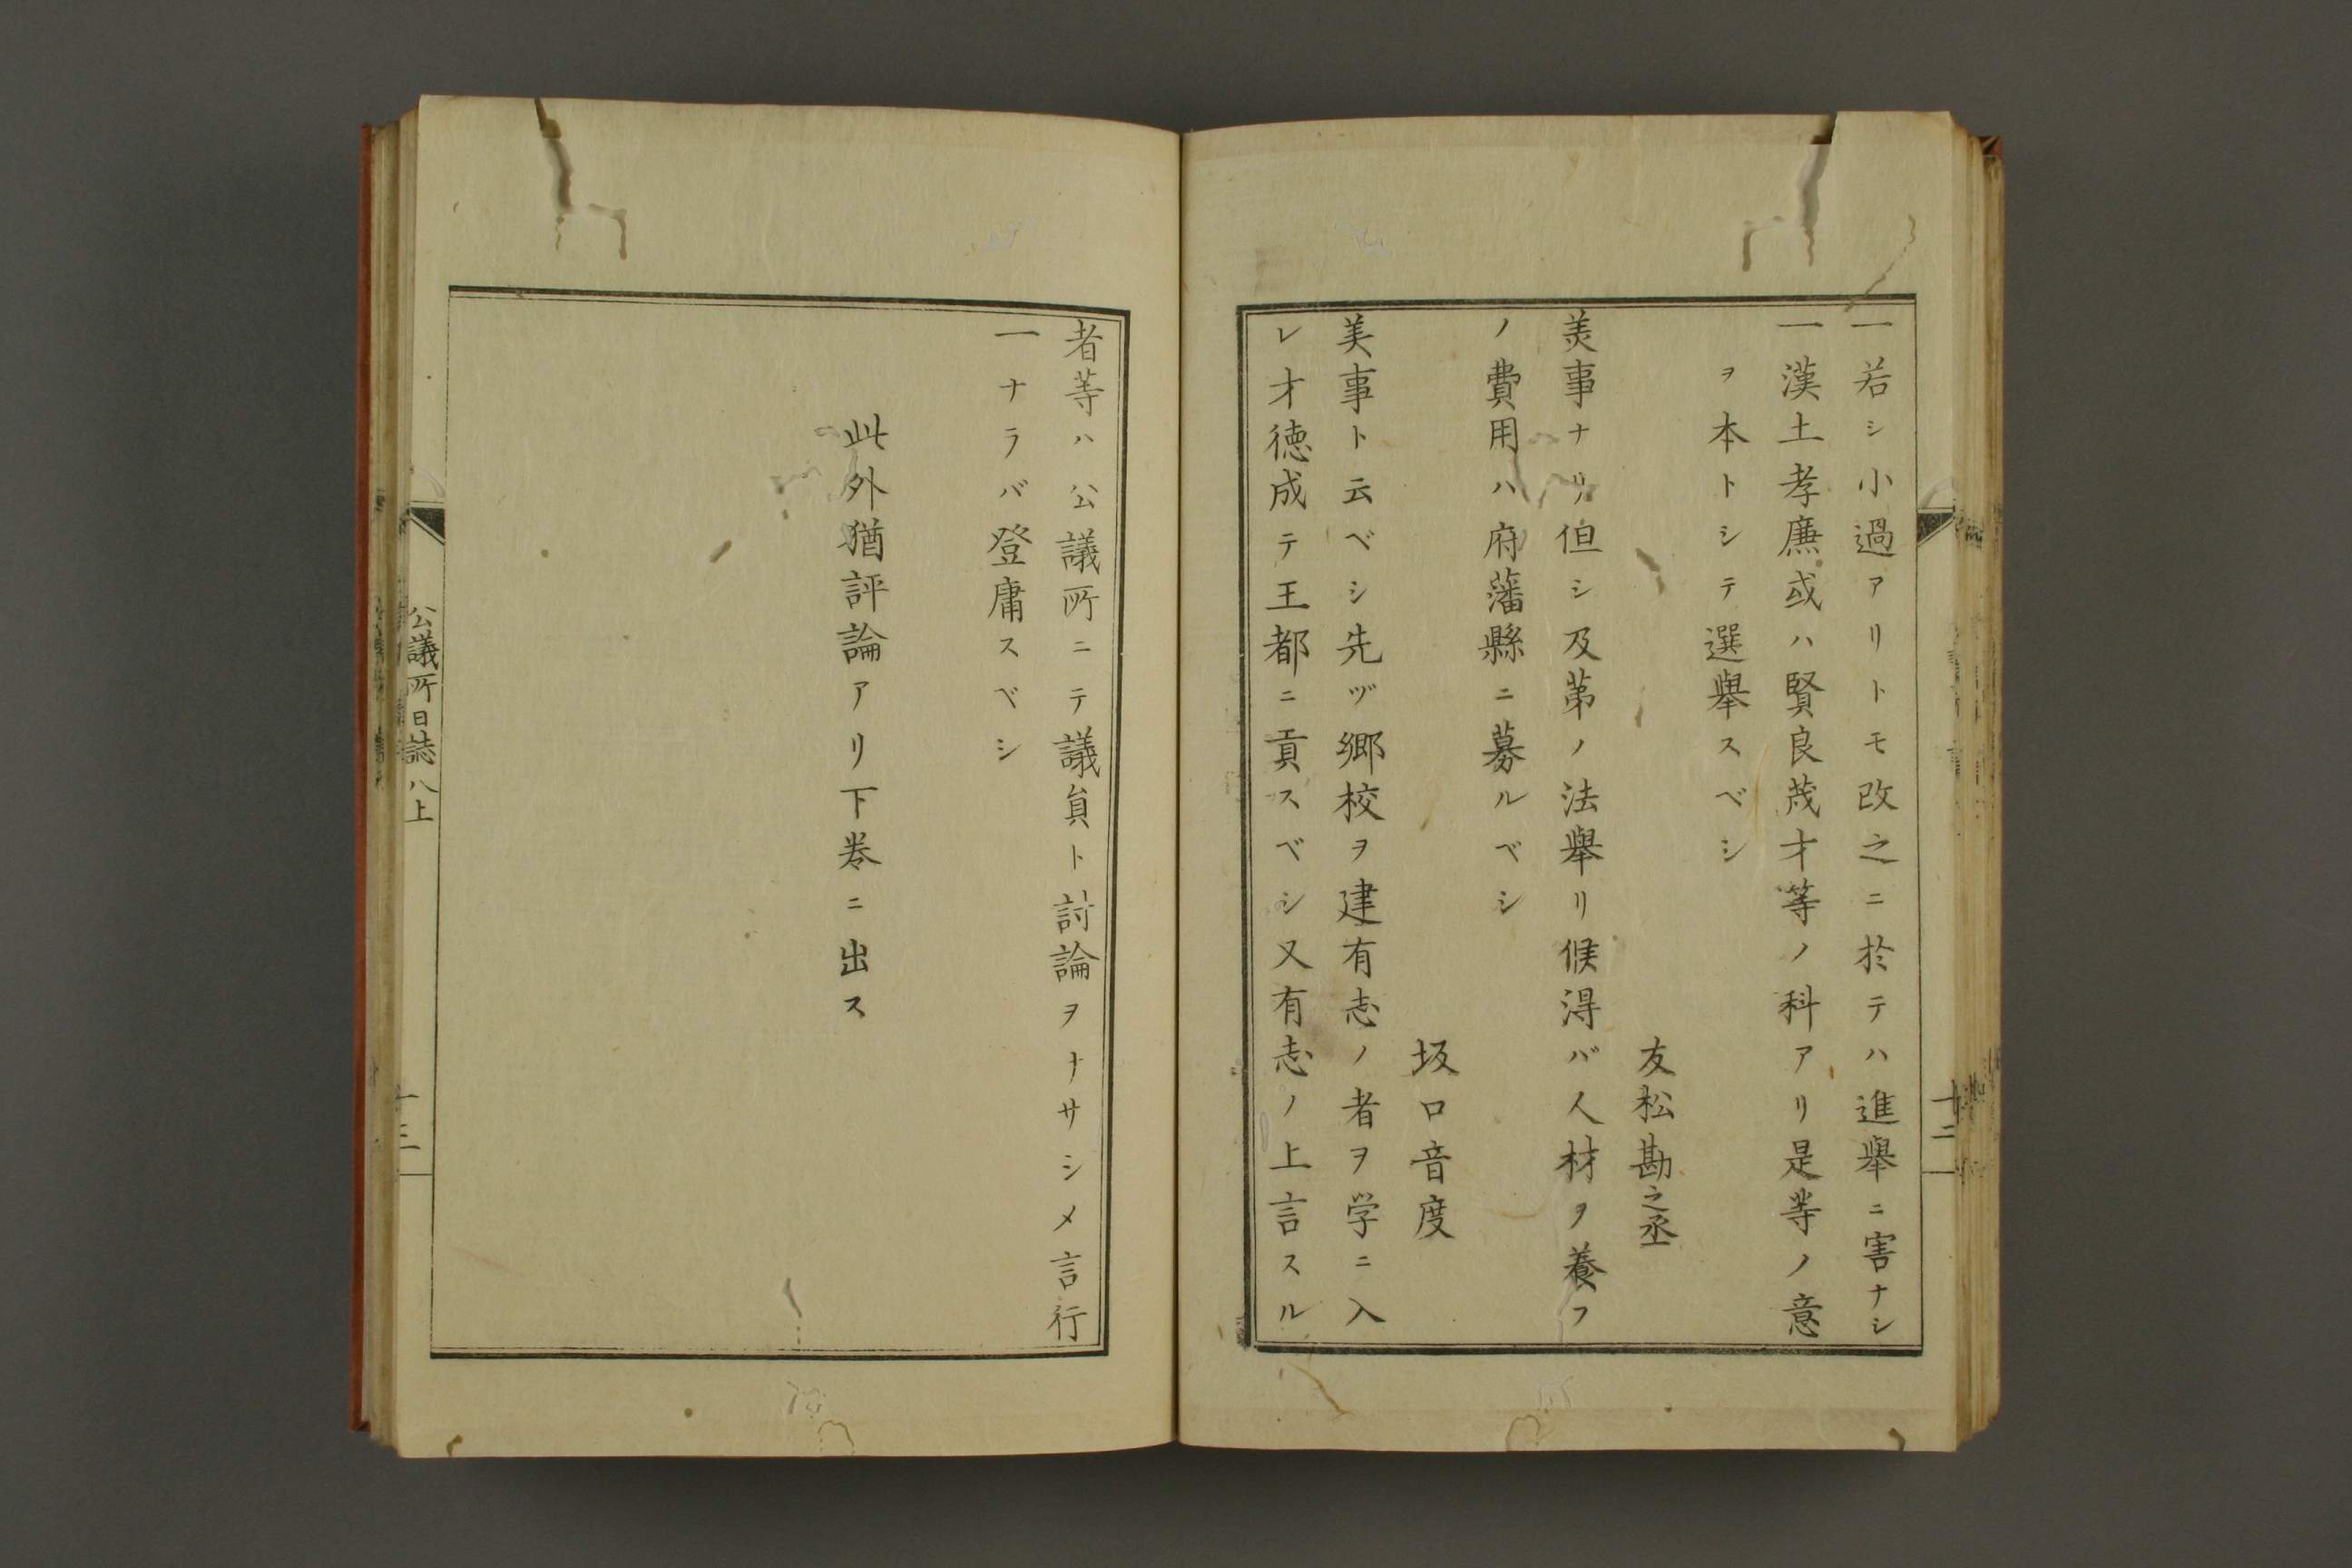 一若シ小過アリトモ改之ニ於テハ進舉ニ害ナシ
一漢土孝廉或ハ賢良茂才等ノ科アリ是等ノ意
ヲ本トシテ選舉スベシ
友松勘之丞
美事ナリ但シ及第ノ法舉リ候得バ人材ヲ養フ
ノ費用ハ府藩縣ニ募ルベシ
坂口音度
美事ト云ベシ先ヅ郷校ヲ建有志ノ者ヲ学ニ入
レ才徳成テ王都ニ貢スベシ又有志ノ上言スル
十二
者等ハ公議所ニテ議員ト討論ヲナサシメ言行
一ナラバ登庸スベシ
此外猶評論アリ下巻ニ出ス
公議所日誌八上
十三